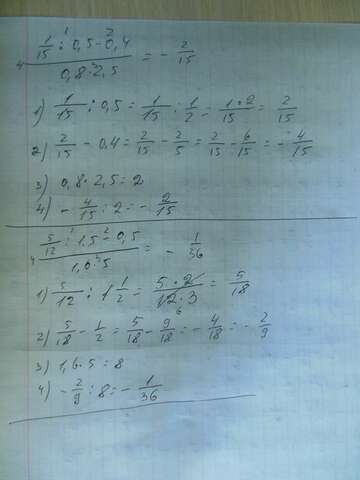 1/15 : 0,5 - 0,4 / 0,8 · 2,5 = - 2/15
1) 1/15 : 0,5 = 1/15 : 1/2 = 1·2/15 = 2/15
2) 2/15 - 0,4 = 2/15 - 2/5 = 2/15 - 6/15 = - 4/15
3) 0,8 · 2,5 = 2
4) - 4/15 : 2 = - 2/15
5/12 : 1,5 - 0,5 / 1,6 · 5 = - 1/36
1) 5/12 : 1 1/2 = 5·2/12·3 = 5/18
2) 5/18 - 1/2 = 5/18 - 9/18 = - 4/18 = - 2/9
3) 1,6 · 5 = 8
4) - 2/9 : 8 = - 1/36